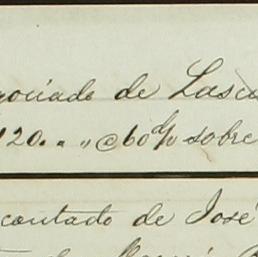 gociado de Lasca
120. " " @ 60 d/v sobre
contado de José